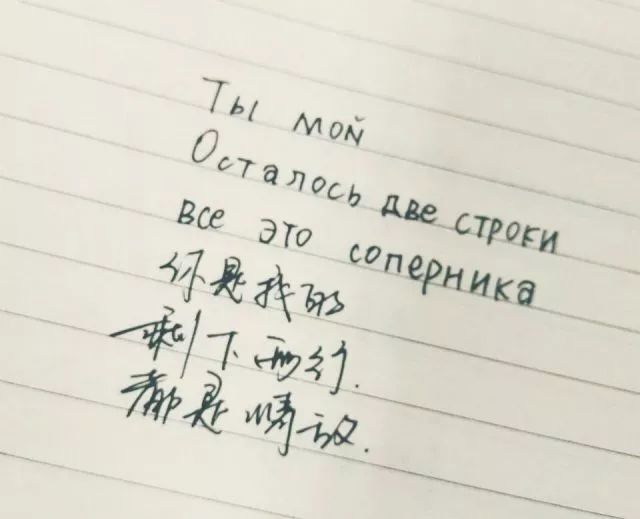 Ты мой
Осталось две строки
все это соперника
你是我的
剩下两行.
都是情敌.